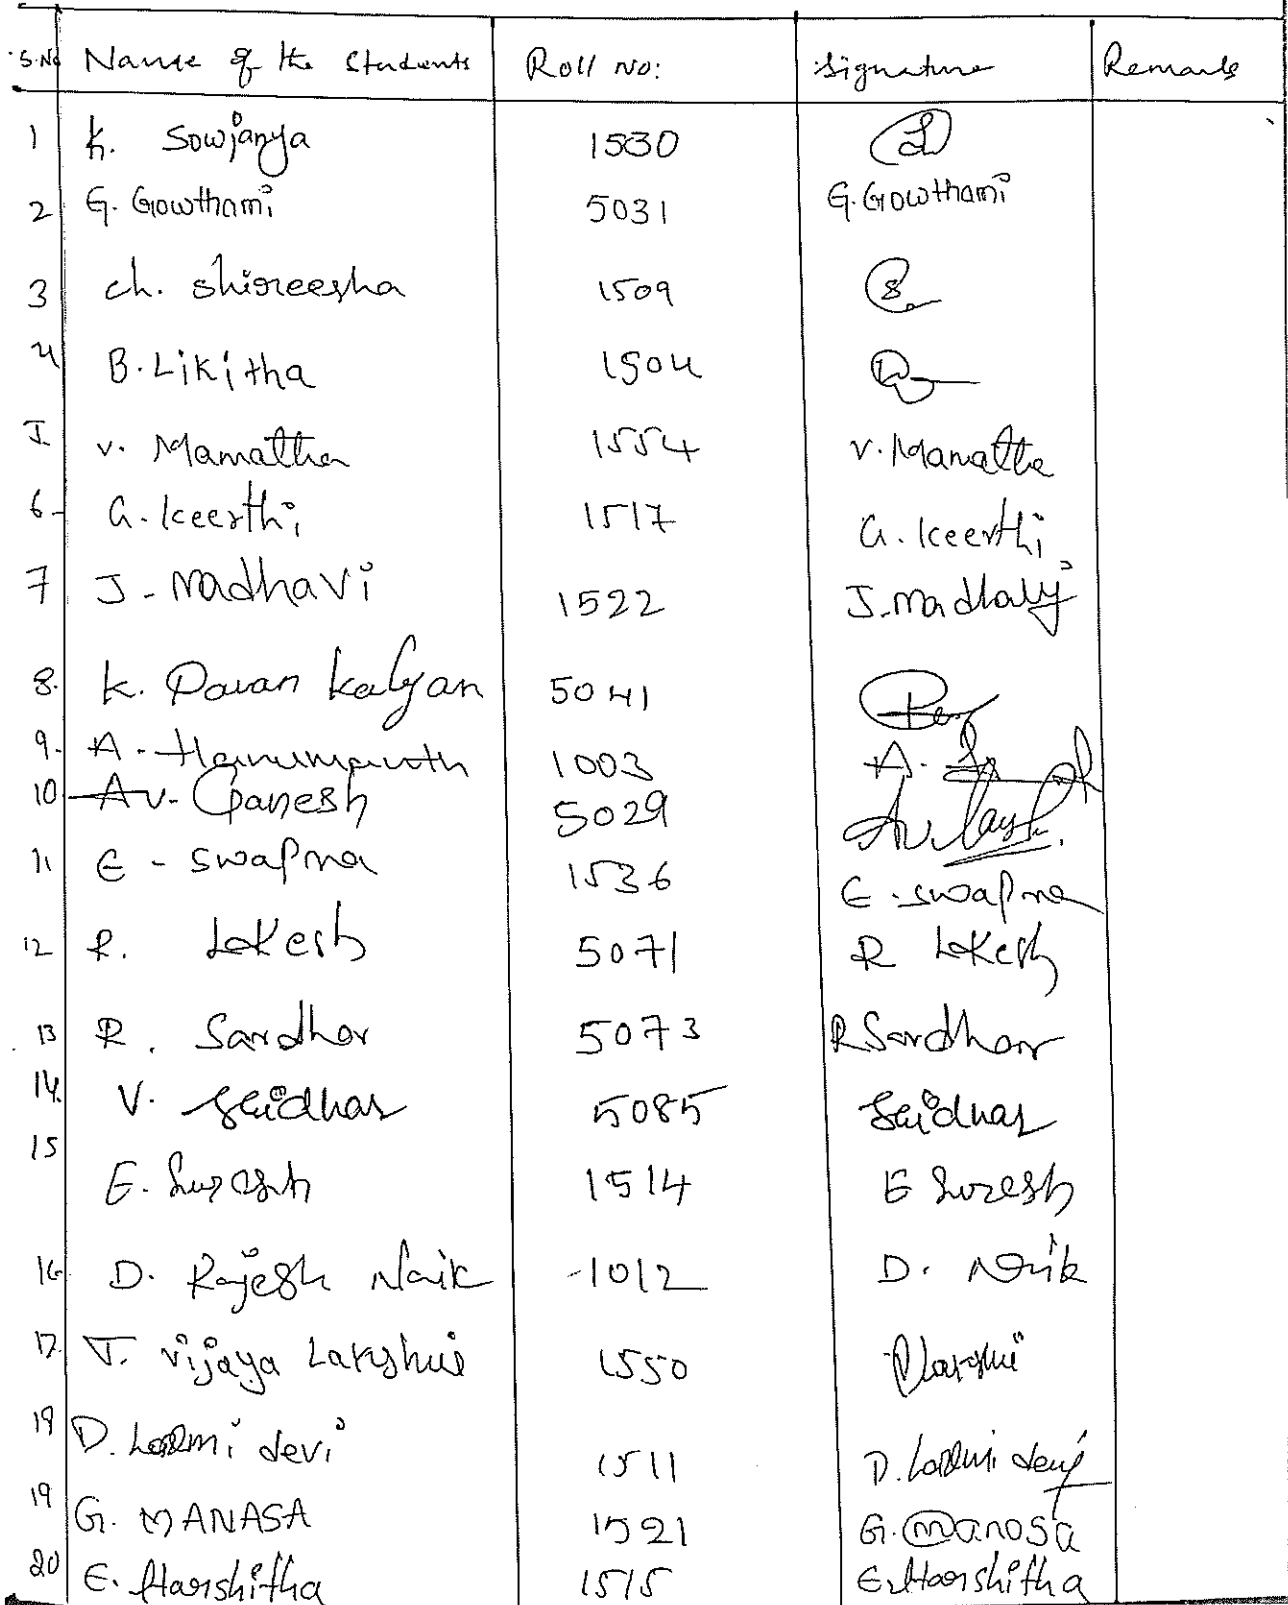 S.No Name of the Students Roll No: Signature Remarks
1 K. Sowjanya 1530
2 G. Gowthami 5031 G. Gowthami
3 ch. shireesha 1509 S
4 B. Likitha 1504
5. v. Mamatha 1554 v. Mamatha
6. G. keerthi 1517 G. keerthi
7 J. Madhavi 1522 J. Madhavi
8. K. Pavan kalyan 5041
9. A. Hanumanth 1003 A.
10 Av. Ganesh 5029 Av
11 E - swapna 1536 E - swapna
12 R. Lokesh 5071 R Lokesh
13 R. Sardhar 5073 R Sardhar
14. V. Sridhar 5085 Sridhar
15 E. Suresh 1514 E Suresh
16 D. Rajesh Naik 1012 D. Naik
17. T. vijaya Lakshmi 1550
19 D. Laxmi devi 1511 D. Laxmi devi
19 G. MANASA 1521 G. manasa
20 E. Harshitha 1515 E. Harshitha